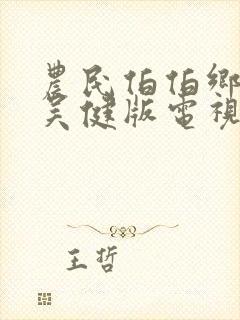 農民伯伯鄉
吴健版電視
王哲